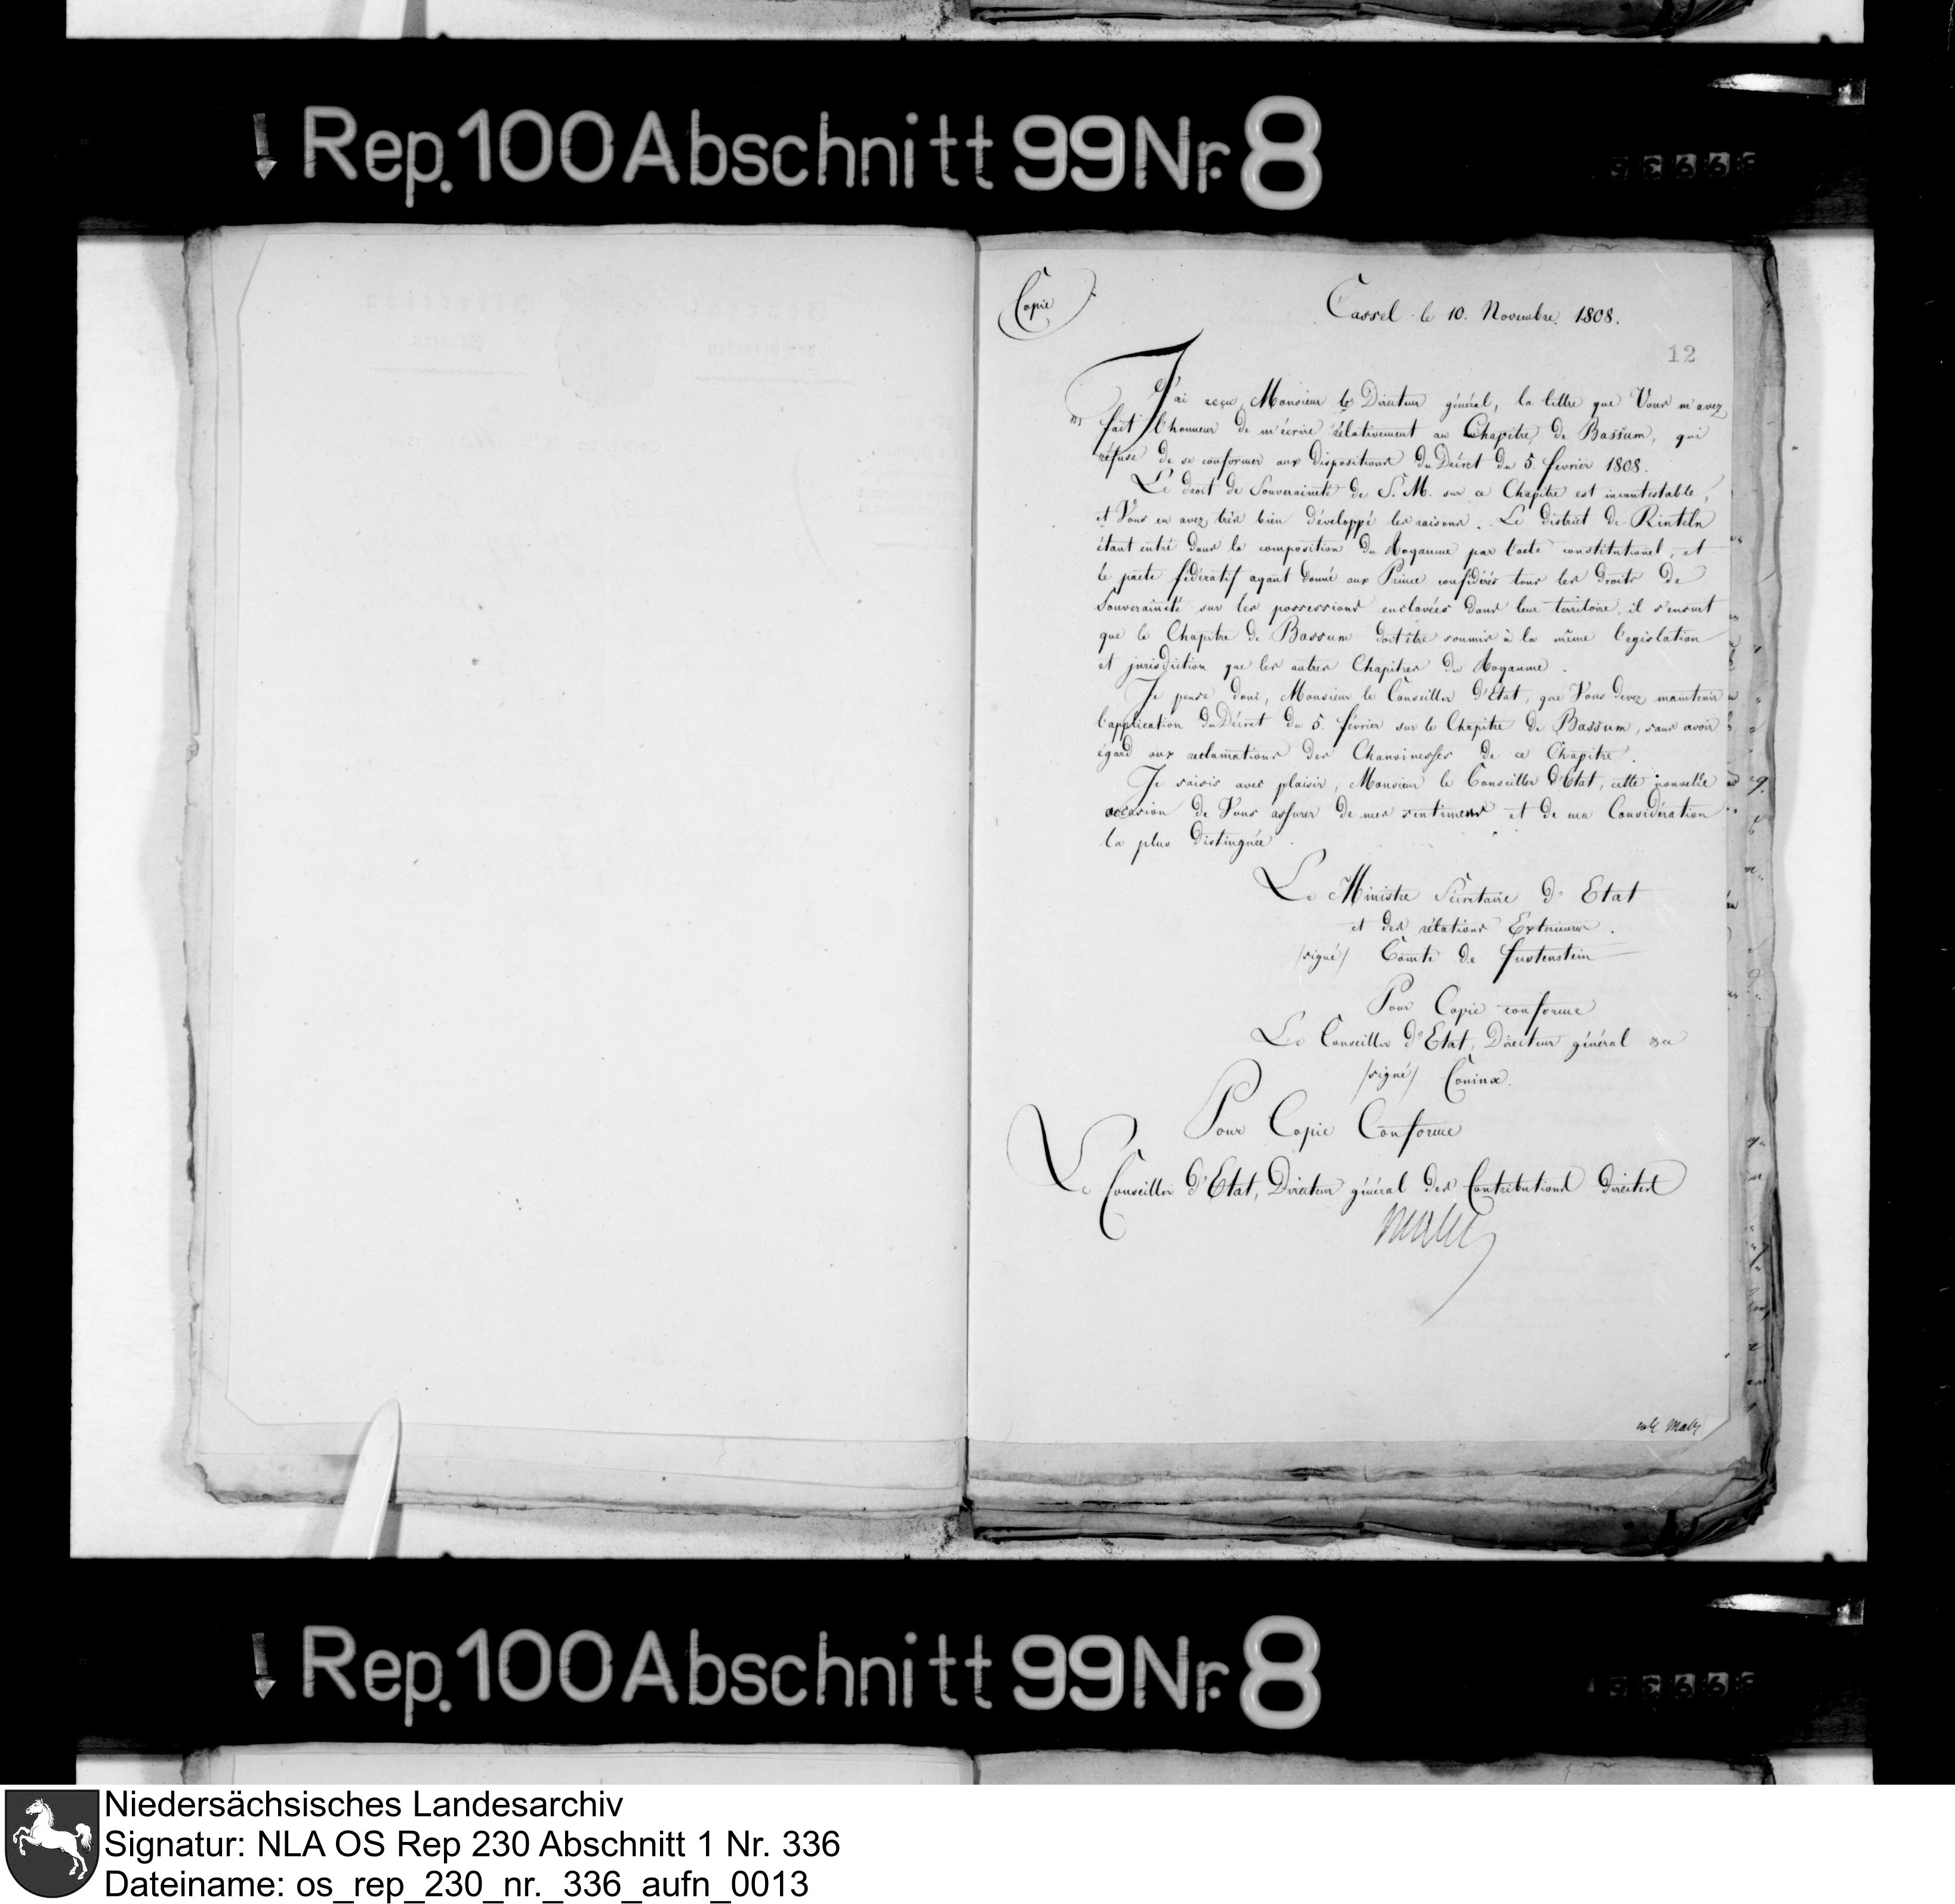 Rep. 100 Abschnitt 99 Nr. 8
Copie
Cassel le 10. Novembre. 1808.
12
J'ai reçu, Monsieur le Directeur général, la lettre que Vous m'avez
fait l'honneur de m'écrire rélativement au Chapitre de Bassum, qui
réfuse de se conformer aux dispositions du Décret du 5. fevrier 1808.
Le droit de Souveraineté de S. M. sur ce Chapitre est incontestable,
et Vous en avez très bien développé les raisons. Le district de Rinteln
étant entré dans la composition du Royaume par l'acte constitutionel, et
le pacte fédératif ayant donné aux Prince confédérés tous les droits de
Souveraineté sur les possessions enclavées dans leur territoire, il s'ensuit
que le Chapitre de Bassum doit être soumis à la même legislation
et jurisdiction que les autres Chapitres du Royaume.
Je pense donc, Monsieur le Conseiller d'Etat, que Vous devez maintenir
l'application du Décret du 5. février sur le Chapitre de Bassum, sans avoir
égard aux reclamations des Chanoinesses de ce Chapitre.
Je saisis avec plaisir, Monsieur le Conseiller d'Etat, cette nouvelle
occasion de Vous assurer de mes sentimens et de ma Considération
la plus distinguée.
Le Ministre Sécretaire d'Etat
et des rélations Extérieures.
/signé/ Comte de Furstenstein
Pour Copie conforme
Le Conseiller d'Etat, Directeur général
/signé/ Coninx.
Pour Copie Conforme
Le Conseiller d'Etat, Directeur général des Contributions directes
Rep. 100 Abschnitt 99 Nr. 8
Niedersächsisches Landesarchiv
Signatur: NLA OS Rep 230 Abschnitt 1 Nr. 336
Dateiname: os_rep_230_nr._336_aufn_0013